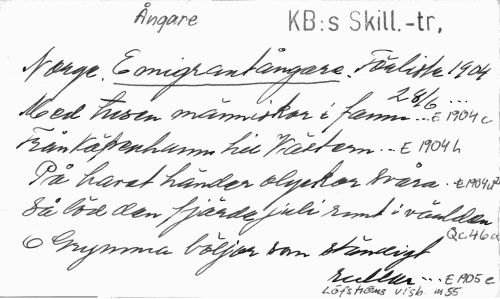 Ångare
KB:s Skill.-tr,
Norge. Emigrantångare. Förliste 1904
28/6 ...
Med tusen människor i famn ... E 1904 c
Från Köpenhamn till Western ... E 1904 h
På havet händer olyckor svåra. E 1904
Så löd den fjärde juli runt i världen
Qc 46 a
O Grymma böljor som ständigt
rullar ... E 1905 e
Löfströms visb. m 55